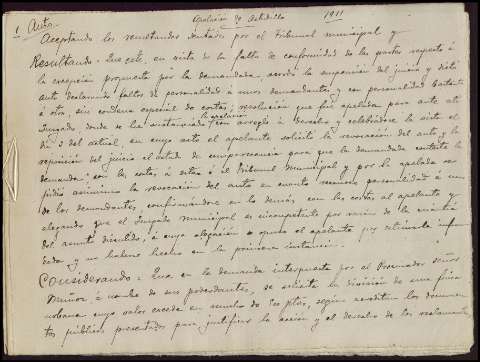 Apelación de Astudillo 1911
1 Auto
Aceptando los resultandos sentados por el Tribunal municipal y
Resultando: Que este, en vista de la falta de conformidad de las partes respecto á
la excepción propuesta por la demandada, acordó la suspensión del juicio y dictó
auto declarando faltos de personalidad á unos demandantes y con personalidad bastante
á otro, sin condena especial de costas; resolución que fué apelada para ante este
Juzgado, donde se ha sustanciado la apelación con arreglo á derecho y celebrándose la vista el
día 3 del actual, en cuyo acto el apelante solicitó la revocación del auto y la
reposición del juicio al estado de comparecencia para que la demandada conteste la
demanda: con las costas á esta ó al Tribunal municipal y por la apelada se
pidió asimismo la revocación del auto en cuanto reconoce personalidad á uno
de los demandantes, confirmándose en lo demás, con las costas al apelante y
alegando que el Juzgado municipal es incompetente por razón de la cuantía
del asunto discutido, á cuya alegación se opuso el apelante por estimarla infun
dada y no haberse hecho en la primera instancia.
Considerando: Que en la demanda interpuesta por el Procurador señor
Muñoz á nombre de sus poderdantes, se solicita la división de una finca
urbana cuyo valor excede en mucho de 500 ptas, según acreditan los documen
tos públicos presentados para justificar la acción y el derecho de los reclamantes